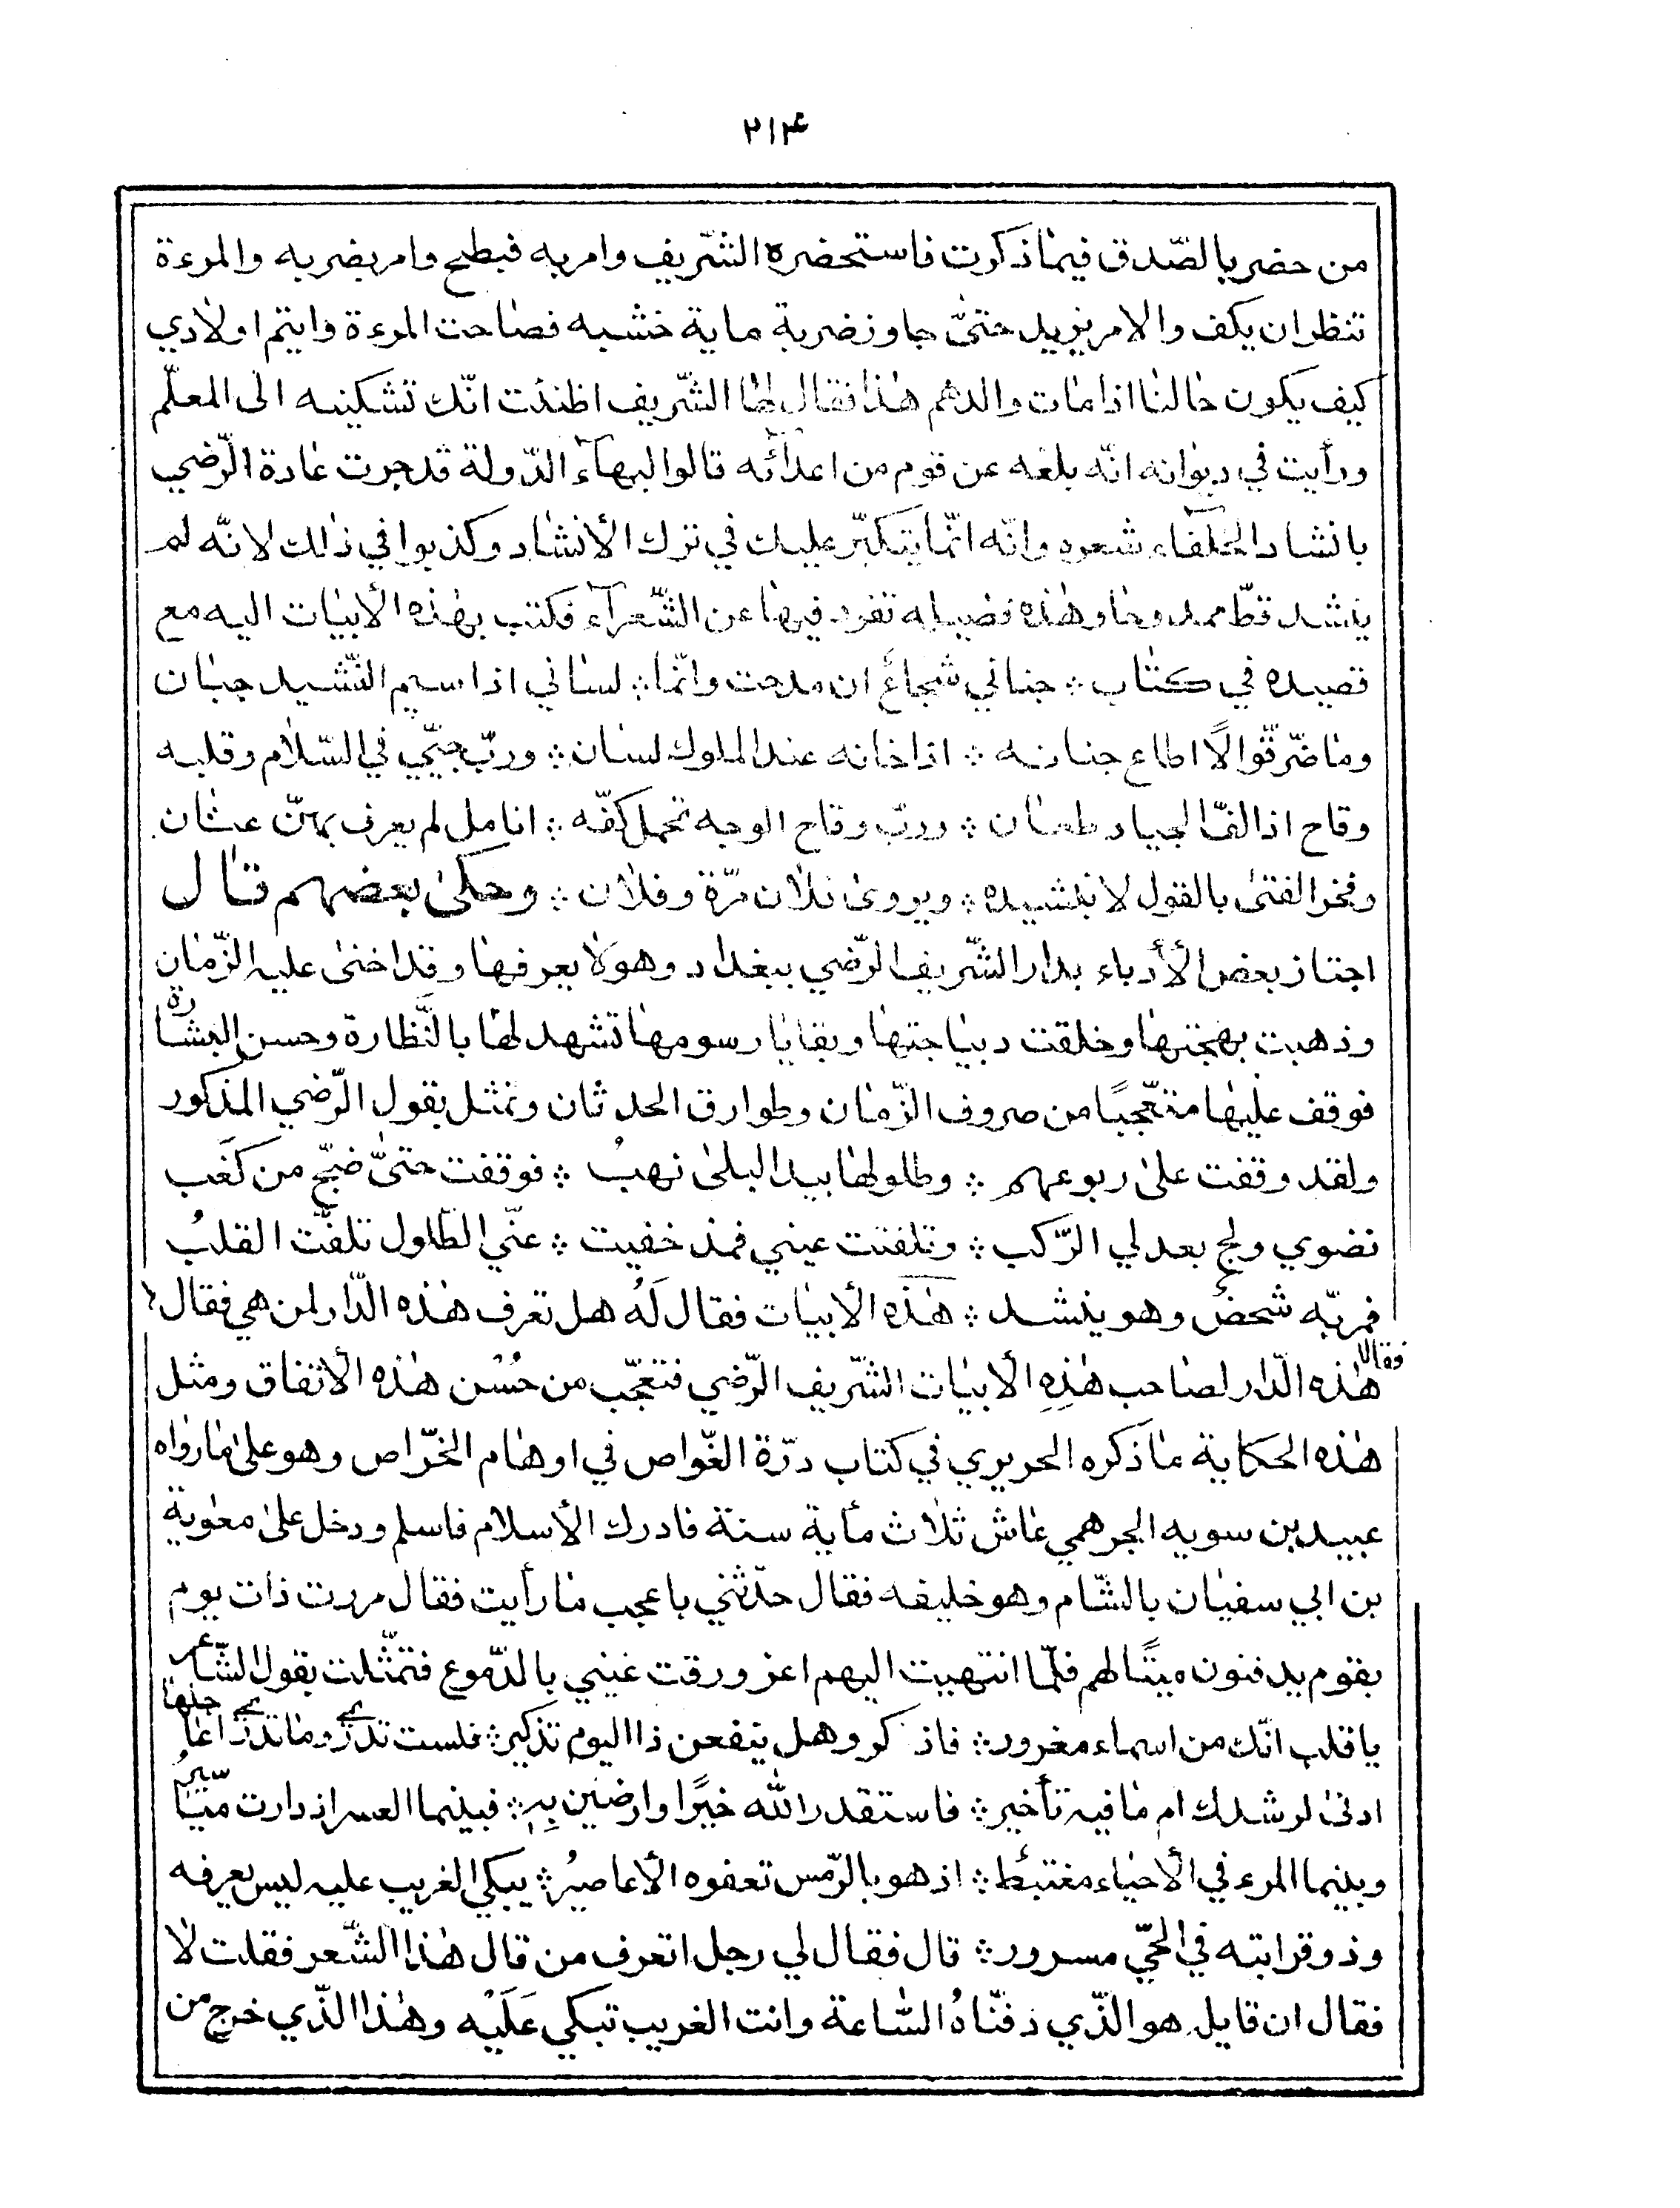 ٢١٤
من حضر بالصّدق فيما ذكرت فاستحضره الشّريف وامر به فبطح وامر بضربه والمرءة
تنظر ان يكف والامر يزيد حتىّ جاوز ضربة ماية خشبه فصاحت المرءة وايتم اولادي
كيف يكون حالنا اذا مات والدهم هذا فقال لها الشّريف اظننت انّك تشكينه الى المعلّم
ورأيت في ديوانه انّه بلغه عن قوم من اعدائه قالوا لبهآء الدّولة قد جرت عادة الرّضي
بانشاد الخلفآء شعره وانّه انّما يتكبّر عليك في ترك الأنشاد وكذبوا في ذلك لانّه لم
ينشد قطّ ممدوحا وهذه فضيلة تفرد فيها عن الشّعرآء فكتب بهذه الأبيات اليه مع
قصيده في كتاب ؞ جناني شجاع ان مدحت وانّما ؞ لساني اذا سيم النّشيد جبان
وما ضرّ قوّالًا اطاع جنانه ؞ اذا خانه عند الملوك لسان ؞ وربّ حييّ في السّلام وقلبه
وقاح اذا لفّ الجياد طعان ؞ وربّ وقاح الوجه تحمل كفّه ؞ انامل لم يعرف بهنّ عنان
وفخر الفتى بالقول لا بنشيده ؞ ويروى فلان مرّة وفلان ؞ وحكى بعضهم قال
اجتاز بعض الأدباء بدار الشّريف الرّضي ببغداد وهو لا يعرفها وقد اخنى عليه الزّمان
وذهبت بهجتها وخلقت ديباجتها وبقايا رسومها تشهد لها بالنّظارة وحسن البشارة
فوقف عليها متعّجبًا من صروف الزّمان وطوارق الحدثان وتمثل بقول الرّضي المذكور
ولقد وقفت على ربوعهم ؞ وطلولها بيد البلى نهبُ ؞ فوقفت حتىّ ضجّ من كغب
نضوي ولج بعدلي الرّكب ؞ وتلفتت عيني فمذ خفيت ؞ عنّي الطّلول تلفّت القلبُ
فمر به شخصٌ وهو ينشد ؞ هذه الأبيات فقال لَهُ هل تعرف هذه الدّار لمن هي فقال لا
فقال هذه الدّار لصاحب هذِهِ الأبيات الشّريف الرّضي فتعجّب من حُسْن هذه الأتفاق ومثل
هذه الحكاية ما ذكره الحريري في كتاب درّة الغّواص في اوهام الخرّاص وهو على ما رواه
عبيد بن سويه الجرهمي عاش ثلاث مأية سنة فادرك الأسلام فاسلم ودخل على معوية
بن ابي سفيان بالشّام وهو خليفه فقال حدّثني باعجب ما رأيت فقال مررت ذات يوم
بقوم يدفنون ميتًا لهم فلمّا انتهيت اليهم اعزورقت عيني بالدّموع فتمثّلت بقول الشّاعر
يا قلب انّك من اسماء مغرور ؞ فاذكر وهل ينفعن ذا اليوم تذكير ؞ فلست تدري وما تدري اعاجلها
ادنى لرشدك ام ما فيه تأخير ؞ فاستقدر الله خيرًا وارضين بِهِ ؞ فبينما العسر اذ دارت ميّاسيرُ
وبينما المرء في الأحياء مغتبط ؞ اذ هو بالرّمس تعفوه الأعاصيرُ ؞ يبكي الغريب عليه ليس يعرفه
وذو قرابته في الحيّ مسرور ؞ قال فقال لي رجل اتعرف من قال هذا الشّعر فقلت لا
فقال ان قايله هو الذّي دفنّاهُ السّاعة وانت الغريب تبكي عَلَيْه وهذا الذّي خرج من